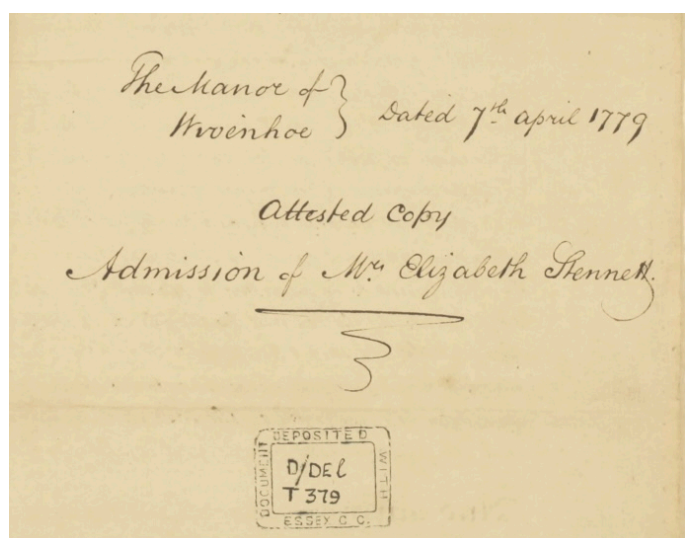 The Manor of
Wivenhoe } Dated 7th April 1779
Attested Copy
Admission of Mrs Elizabeth Stennett.
DOCUMENT DEPOSITED WITH
D/DEl
T 379
ESSEX C.C.